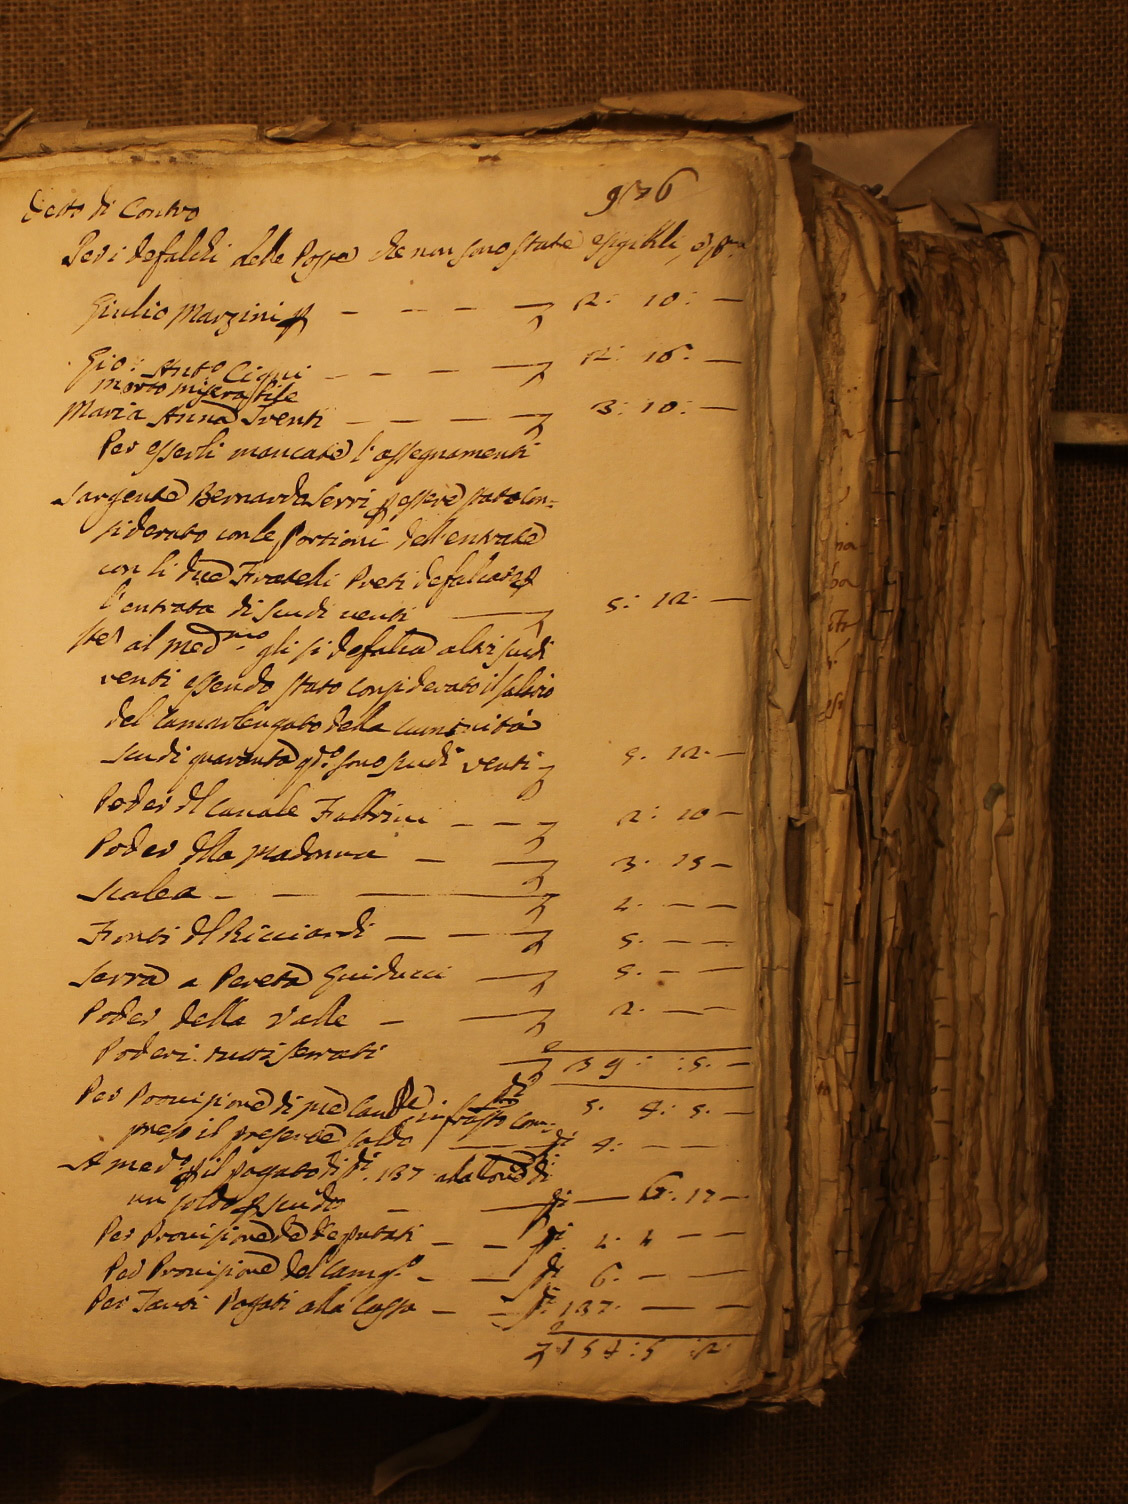 Detto di Contro 976
Per i defalchi delle Poste che non sono state esigibili, e p.ma
Giulio Marzini p — — — — 2: 10: —
Gio: Ant.o Cigni — — — — 12: 16: —
morto miserabile
Maria Anna Trenti — — — — 3: 10: —
Per esserli mancate l'assegnamenti
Sargente Bernardo Serri p essere stato con=
siderato con le Portioni dell'entrate
con li due Fratelli Preti defalcasi p
l'entrata di scudi venti — 5: 12: —
Per al med.mo gli si defalca altri scudi
venti essendo stato considerato il salario
del Camarlengato della comunità
scudi quaranta q.do sono scudi venti 5. 12. —
Poder del Canale Faltrini — — — 2: 10 —
Poder della Madonna — — 3. 15 —
Scalea — — — 2. — —
Fonti del Ricciardi — — — 5. — —
Serra a Pereta Guiducci — 5. — —
Poder della Valle — — 2. — —
Poderi tutti serrati — 39: :5. —
Per Provisione di me infra.tto com=
preso il presente saldo — di 4: — —
5. 4: 5. —
A med.o p il pagato di di. 137 alla
un soldo p scudo — — di — 6. 17 —
Per Provisione de Deputati — — di 4 — —
Per Provisione del Camg.o — — di 6. — —
Per Tanti Pagati alla Cassa — — di 137. — —
154: 5 :2: